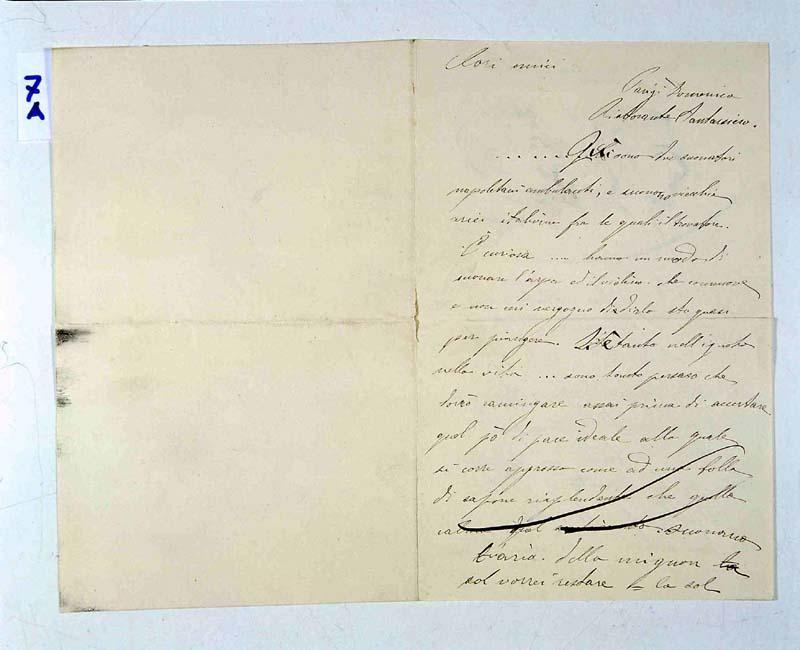 7
A
Cari amici
Parigi Domenica
Ristorante Santarsiero.
...... Qui ci sono tre suonatori
napoletani ambulanti, e suonano vecchie
arie italiane fra le quali il trovatore.
È curiosa ... hanno un modo di
suonare l'arpa ed il violino che commuove
e non mi vergogno di dirlo sto quasi
per piangere. tanto nell'ignoto
nella vita ... sono tanto persaso che
dovrò ramingare assai prima di accertare
quel pò di pace ideale alla quale
si corre appresso come ad una bolla
di sapone risplendente che quella
suonano
l'aria della mignon la
sol vorrei restare = la sol